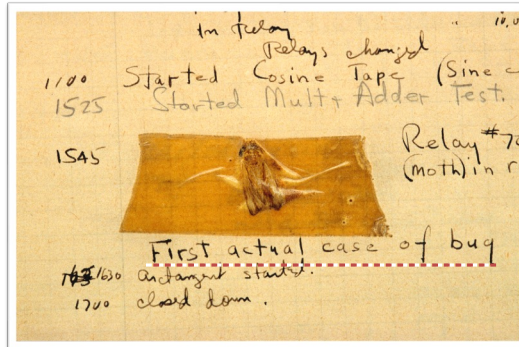 In relay
Relays changed
1100 Started Cosine Tape (Sine c
1525 Started Mult + Adder Test.
1545 Relay #70
(moth) in r
First actual case of bug
1630 started.
1700 closed down.